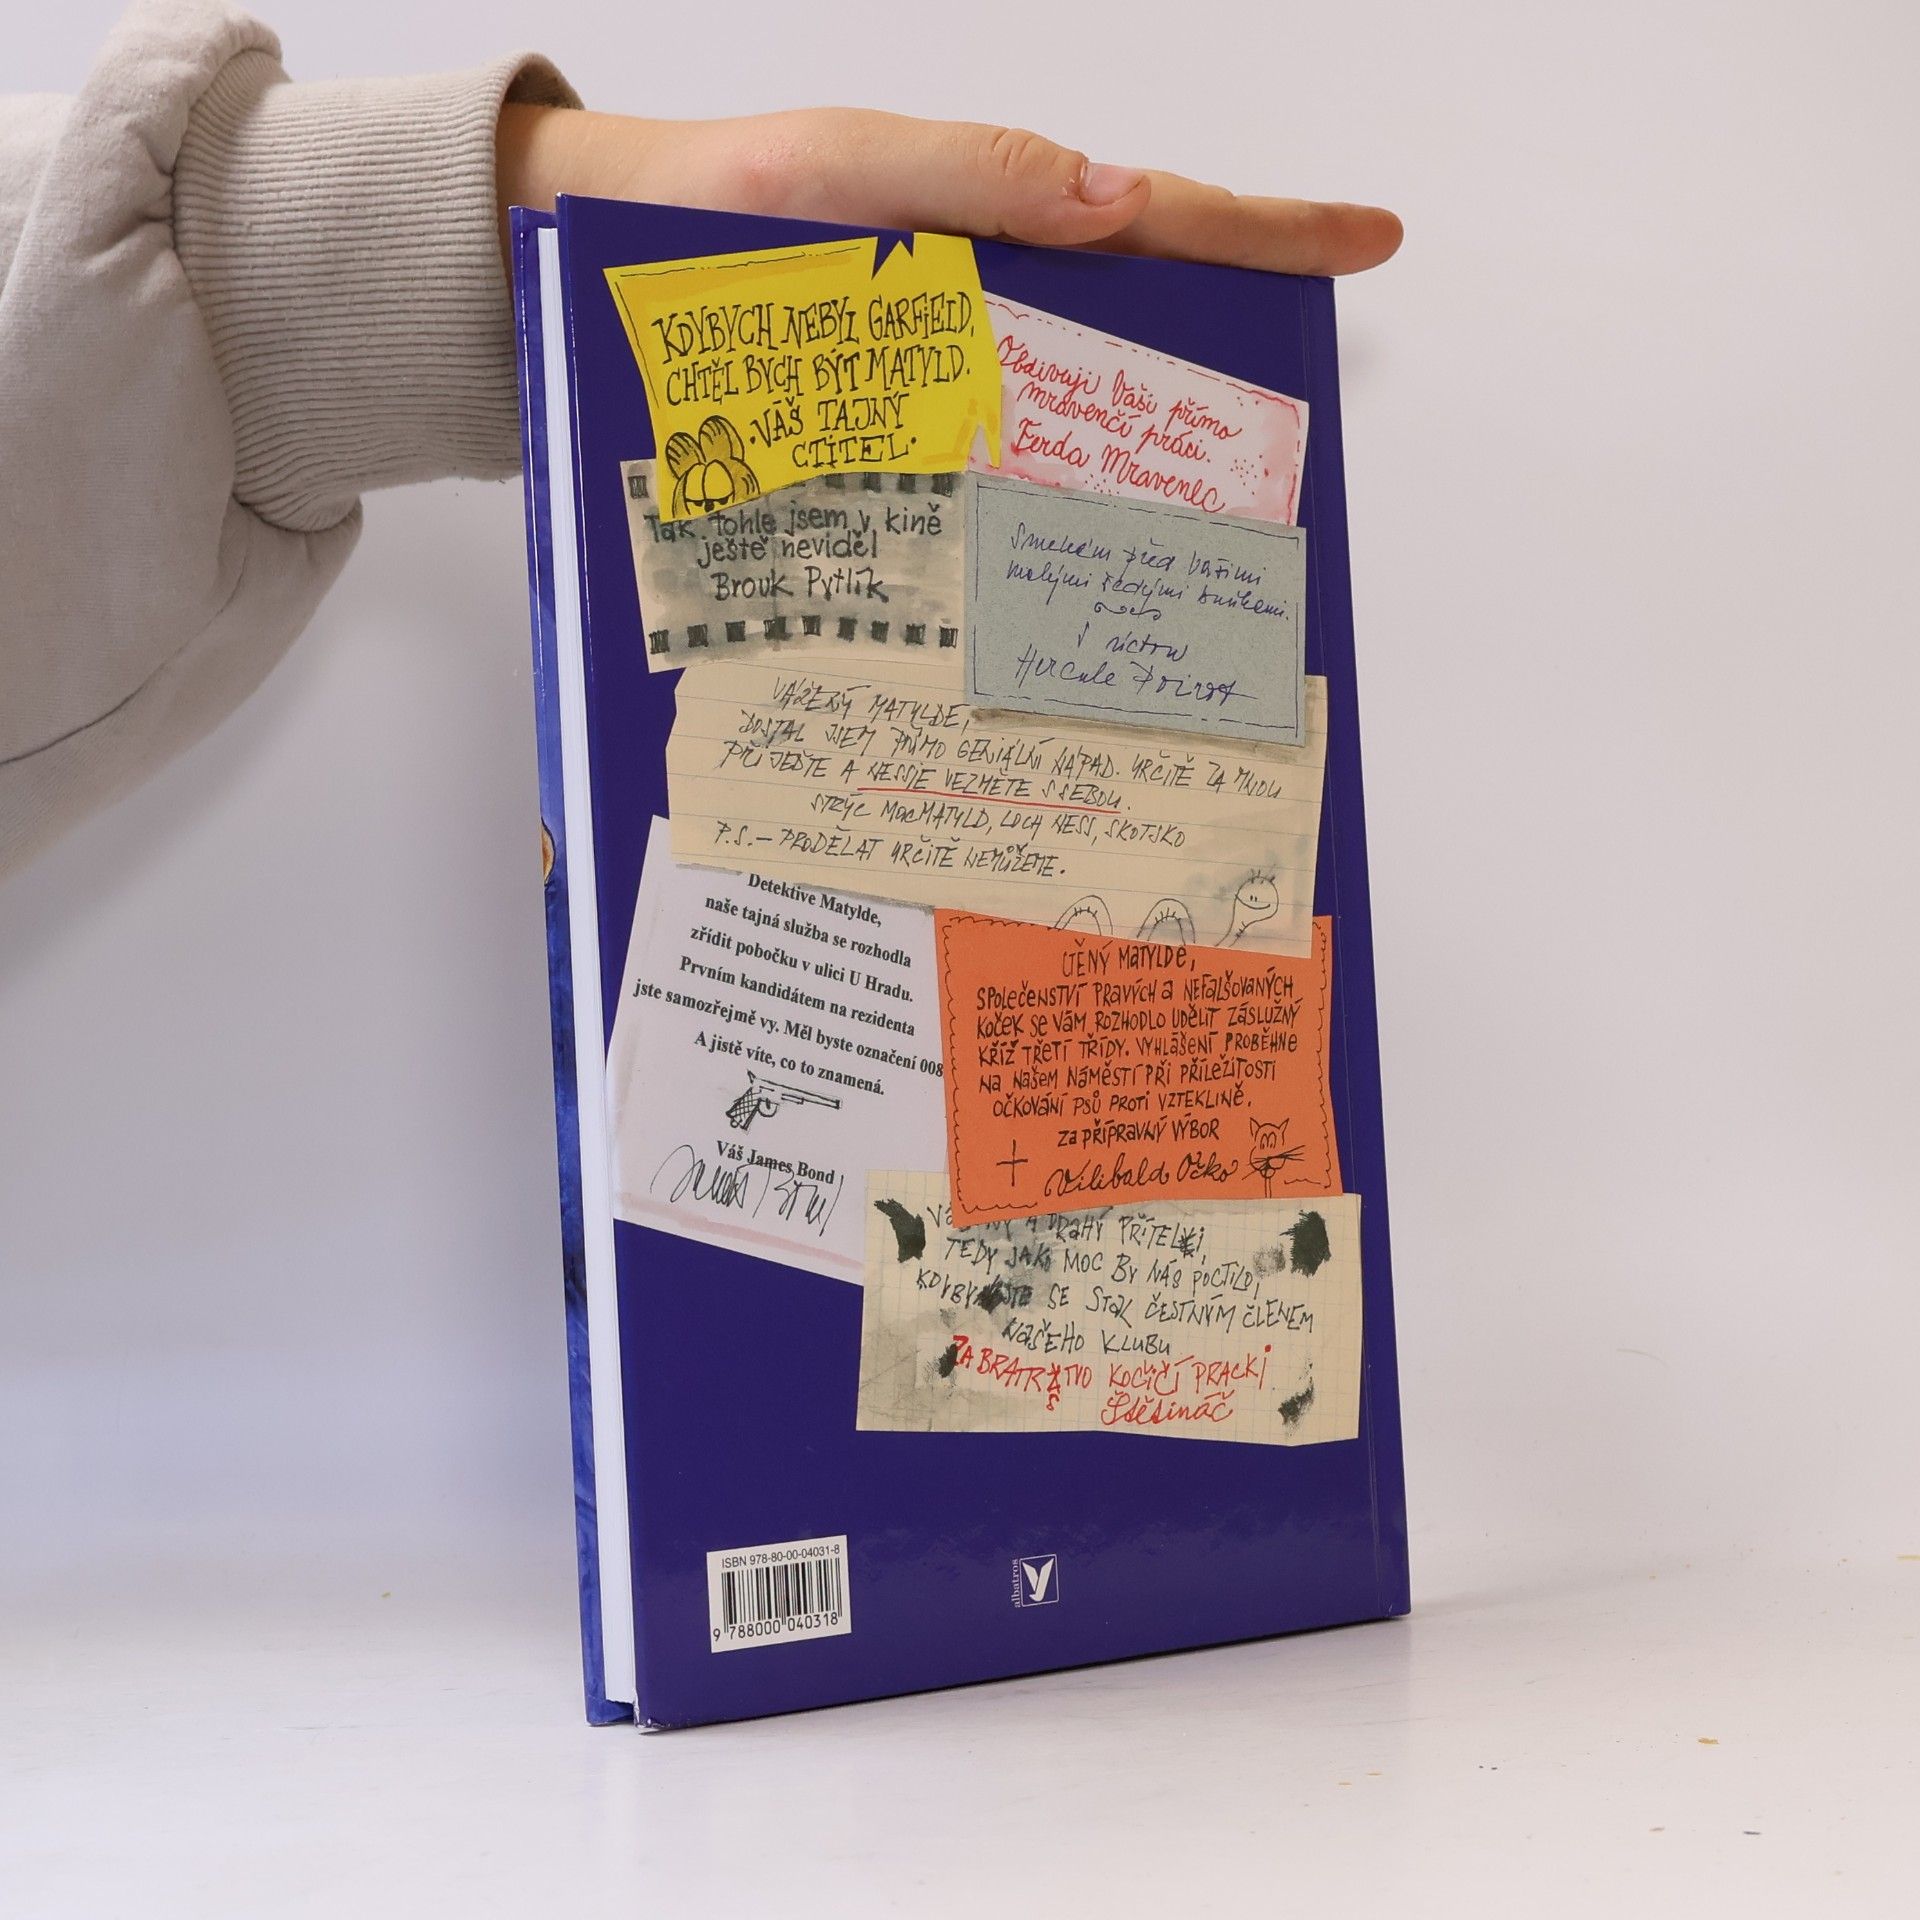 KDYBYCH NEBYL GARFIELD,
CHTĚL BYCH BÝT MATYLD.
·VÁŠ TAJNÝ
CTITEL·
Obdivuji Vaši přímo
mravenčí práci.
Ferda Mravenec
Tak tohle jsem v kině
ještě neviděl
Brouk Pytlík
Smekám před Vašimi
malými šedými buňkami.
S úctou
Hercule Poirot
VÁŽENÝ MATYLDE,
DOSTAL JSEM PŘÍMO GENIÁLNÍ NÁPAD. URČITĚ ZA MNOU
PŘIJEĎTE A NESSIE VEZMĚTE S SEBOU.
STRÝC MACMATYLD, LOCH NESS, SKOTSKO
P.S. — PRODĚLAT URČITĚ NEMŮŽEME.
Detektive Matylde,
naše tajná služba se rozhodla
zřídit pobočku v ulici U Hradu.
Prvním kandidátem na rezidenta
jste samozřejmě vy. Měl byste označení 008
A jistě víte, co to znamená.
Váš James Bond
James Bond
CTĚNÝ MATYLDE,
SPOLEČENSTVÍ PRAVÝCH A NEFALŠOVANÝCH
KOČEK SE VÁM ROZHODLO UDĚLIT ZÁSLUŽNÝ
KŘÍŽ TŘETÍ TŘÍDY. VYHLÁŠENÍ PROBĚHNE
NA NAŠEM NÁMĚSTÍ PŘI PŘÍLEŽITOSTI
OČKOVÁNÍ PSŮ PROTI VZTEKLINĚ.
ZA PŘÍPRAVNÝ VÝBOR
Vilibald Očko
A DRAHÝ PŘÍTELI,
TEDY JAKO MOC BY NÁS POCTILO,
KDYBYSTE SE STAL ČESTNÝM ČLENEM
NAŠEHO KLUBU
ZA BRATRSTVO KOČIČÍ PRACKI
Štětináč
ISBN 978-80-00-04031-8
9 788000 040318
albatros